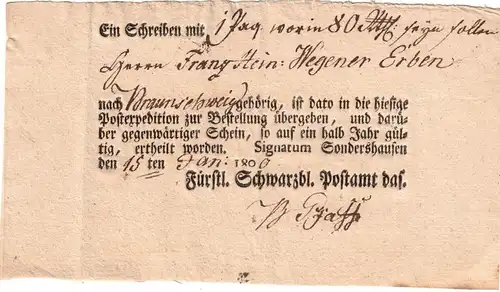 Ein Schreiben mit 1 Paq. worin 80 Rthl: seyn sollen
Herrn Franz Stein: Wegener Erben
nach Braunschweig gehörig, ist dato in die hiesige
Postexpedition zur Bestellung übergeben, und darü-
ber gegenwärtiger Schein, so auf ein halb Jahr gül-
tig, ertheilt worden. Signatum Sondershausen
den 15ten Jan: 1806
Fürstl. Schwarzbl. Postamt das.